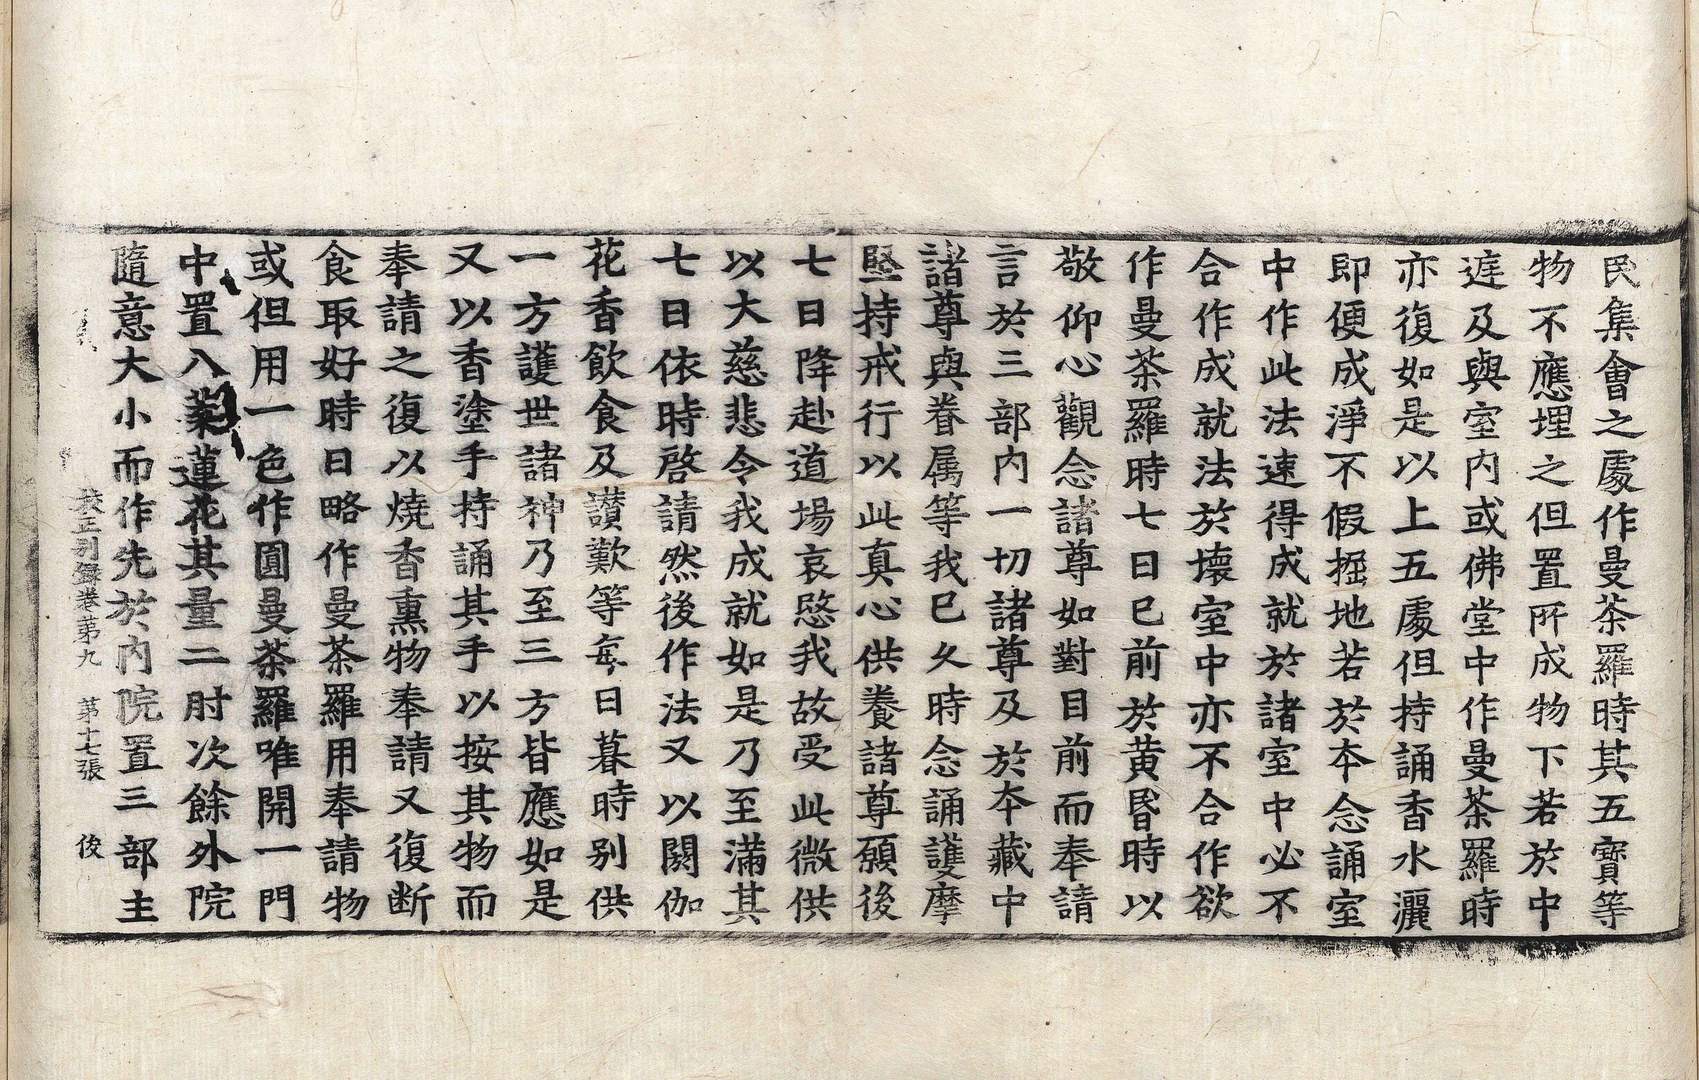 民集會之處作曼荼羅時其五寶等
物不應埋之但置所成物下若於中
遮及與室内或佛堂中作曼荼羅時
亦復如是以上五處但持誦香水灑
即便成淨不假掘地若於本念誦室
中作此法速得成就於諸室中必不
合作成就法於壞室中亦不合作欲
作曼荼羅時七日已前於黄昬時以
敬仰心觀念諸尊如對目前而奉請
言於三部内一切諸尊及於本藏中
諸尊與眷属等我已久時念誦護摩
堅持戒行以此真心供養諸尊願後
七日降赴道場哀愍我故受此微供
以大慈悲令我成就如是乃至滿其
七日依時啓請然後作法又以閼伽
花香飲食及讃歎等每日暮時别供
一方護世諸神乃至三方皆應如是
又以香塗手持誦其手以按其物而
奉請之復以燒香熏物奉請又復断
食取好時日略作曼荼羅用奉請物
或但用一色作圓曼荼羅唯開一門
中置八葉蓮花其量二肘次餘外院
隨意大小而作先於内院置三部主
校正别録卷第九　第十七張　後